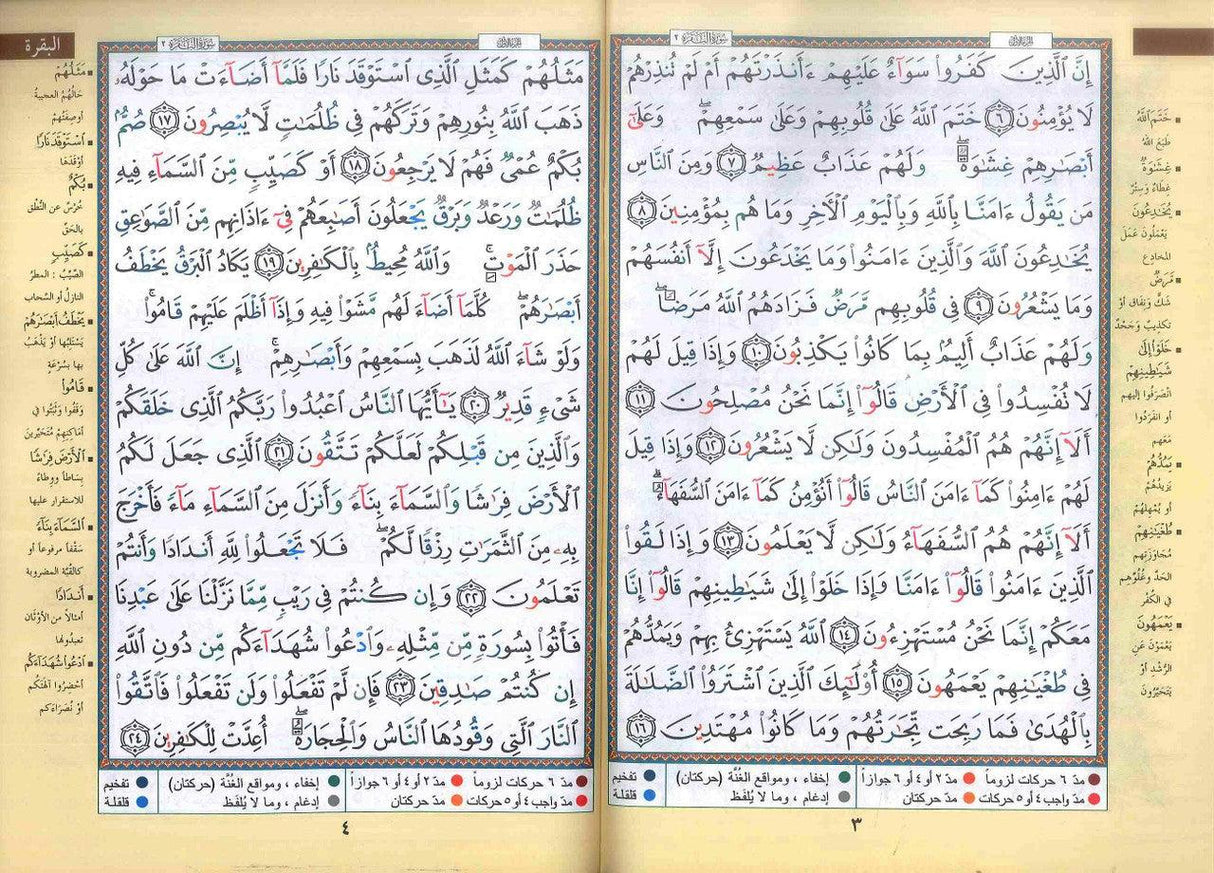 سورة البقرة ٢
الجزء الأول
إِنَّ الَّذِينَ كَفَرُوا۟ سَوَآءٌ عَلَيْهِمْ ءَأَنذَرْتَهُمْ أَمْ لَمْ تُنذِرْهُمْ
لَا يُؤْمِنُونَ ٦ خَتَمَ اللَّهُ عَلَىٰ قُلُوبِهِمْ وَعَلَىٰ سَمْعِهِمْ ۖ وَعَلَىٰٓ
أَبْصَـٰرِهِمْ غِشَـٰوَةٌ ۖ وَلَهُمْ عَذَابٌ عَظِيمٌ ٧ وَمِنَ النَّاسِ
مَن يَقُولُ ءَامَنَّا بِاللَّهِ وَبِالْيَوْمِ الْـَٔاخِرِ وَمَا هُم بِمُؤْمِنِينَ ٨
يُخَـٰدِعُونَ اللَّهَ وَالَّذِينَ ءَامَنُوا۟ وَمَا يَخْدَعُونَ إِلَّآ أَنفُسَهُمْ
وَمَا يَشْعُرُونَ ٩ فِى قُلُوبِهِم مَّرَضٌ فَزَادَهُمُ اللَّهُ مَرَضًا ۖ
وَلَهُمْ عَذَابٌ أَلِيمٌۢ بِمَا كَانُوا۟ يَكْذِبُونَ ١٠ وَإِذَا قِيلَ لَهُمْ
لَا تُفْسِدُوا۟ فِى الْأَرْضِ قَالُوٓا۟ إِنَّمَا نَحْنُ مُصْلِحُونَ ١١
أَلَآ إِنَّهُمْ هُمُ الْمُفْسِدُونَ وَلَـٰكِن لَّا يَشْعُرُونَ ١٢ وَإِذَا قِيلَ
لَهُمْ ءَامِنُوا۟ كَمَآ ءَامَنَ النَّاسُ قَالُوٓا۟ أَنُؤْمِنُ كَمَآ ءَامَنَ السُّفَهَآءُ ۗ
أَلَآ إِنَّهُمْ هُمُ السُّفَهَآءُ وَلَـٰكِن لَّا يَعْلَمُونَ ١٣ وَإِذَا لَقُوا۟
الَّذِينَ ءَامَنُوا۟ قَالُوٓا۟ ءَامَنَّا وَإِذَا خَلَوْا۟ إِلَىٰ شَيَـٰطِينِهِمْ قَالُوٓا۟ إِنَّا
مَعَكُمْ إِنَّمَا نَحْنُ مُسْتَهْزِءُونَ ١٤ اللَّهُ يَسْتَهْزِئُ بِهِمْ وَيَمُدُّهُمْ
فِى طُغْيَـٰنِهِمْ يَعْمَهُونَ ١٥ أُو۟لَـٰٓئِكَ الَّذِينَ اشْتَرَوُا۟ الضَّلَـٰلَةَ
بِالْهُدَىٰ فَمَا رَبِحَت تِّجَـٰرَتُهُمْ وَمَا كَانُوا۟ مُهْتَدِينَ ١٦
خَتَمَ اللَّهُ
طَبَعَ اللهُ
غِشَـٰوَةٌ
غِطَاءٌ وَسِتْرٌ
يُخَـٰدِعُونَ
يَعْمَلُونَ عَمَلَ
المخادِع
مَّرَضٌ
شَكٌّ ونِفَاقٌ أوْ
تكذيبٌ وَجَحْدٌ
خَلَوْا۟ إِلَىٰ
شَيَـٰطِينِهِمْ
انْصَرَفُوا إليهم
أو انفَرَدُوا
مَعَهم
يَمُدُّهُمْ
يَزِيدُهُمْ
أو يُمْهِلُهُمْ
طُغْيَـٰنِهِمْ
مُجَاوَزَتِهِم
الحَدَّ وغُلُوِّهِم
في الكُفْر
يَعْمَهُونَ
يَعْمَوْنَ عَنِ
الرُّشْدِ أوْ
يَتَحَيَّرُونَ
مدّ ٦ حركات لزوماً
مدّ ٢ أو ٤ أو ٦ جوازاً
إخفاء ، ومواقع الغُنَّة (حركتان)
تفخيم
مدّ واجب ٤ أو ٥ حركات
مدّ حركتان
إدغام ، وما لا يُلفَظ
قلقلة
٣
سورة البقرة ٢
الجزء الأول
البقرة
مَثَلُهُمْ كَمَثَلِ الَّذِى اسْتَوْقَدَ نَارًا فَلَمَّآ أَضَآءَتْ مَا حَوْلَهُۥ
ذَهَبَ اللَّهُ بِنُورِهِمْ وَتَرَكَهُمْ فِى ظُلُمَـٰتٍ لَّا يُبْصِرُونَ ١٧ صُمٌّۢ
بُكْمٌ عُمْىٌ فَهُمْ لَا يَرْجِعُونَ ١٨ أَوْ كَصَيِّبٍ مِّنَ السَّمَآءِ فِيهِ
ظُلُمَـٰتٌ وَرَعْدٌ وَبَرْقٌ يَجْعَلُونَ أَصَـٰبِعَهُمْ فِىٓ ءَاذَانِهِم مِّنَ الصَّوَٰعِقِ
حَذَرَ الْمَوْتِ ۚ وَاللَّهُ مُحِيطٌۢ بِالْكَـٰفِرِينَ ١٩ يَكَادُ الْبَرْقُ يَخْطَفُ
أَبْصَـٰرَهُمْ ۖ كُلَّمَآ أَضَآءَ لَهُم مَّشَوْا۟ فِيهِ وَإِذَآ أَظْلَمَ عَلَيْهِمْ قَامُوا۟ ۚ
وَلَوْ شَآءَ اللَّهُ لَذَهَبَ بِسَمْعِهِمْ وَأَبْصَـٰرِهِمْ ۚ إِنَّ اللَّهَ عَلَىٰ كُلِّ
شَىْءٍ قَدِيرٌ ٢٠ يَـٰٓأَيُّهَا النَّاسُ اعْبُدُوا۟ رَبَّكُمُ الَّذِى خَلَقَكُمْ
وَالَّذِينَ مِن قَبْلِكُمْ لَعَلَّكُمْ تَتَّقُونَ ٢١ الَّذِى جَعَلَ لَكُمُ
الْأَرْضَ فِرَٰشًا وَالسَّمَآءَ بِنَآءً وَأَنزَلَ مِنَ السَّمَآءِ مَآءً فَأَخْرَجَ
بِهِۦ مِنَ الثَّمَرَٰتِ رِزْقًا لَّكُمْ ۖ فَلَا تَجْعَلُوا۟ لِلَّهِ أَندَادًا وَأَنتُمْ
تَعْلَمُونَ ٢٢ وَإِن كُنتُمْ فِى رَيْبٍ مِّمَّا نَزَّلْنَا عَلَىٰ عَبْدِنَا
فَأْتُوا۟ بِسُورَةٍ مِّن مِّثْلِهِۦ وَادْعُوا۟ شُهَدَآءَكُم مِّن دُونِ اللَّهِ
إِن كُنتُمْ صَـٰدِقِينَ ٢٣ فَإِن لَّمْ تَفْعَلُوا۟ وَلَن تَفْعَلُوا۟ فَاتَّقُوا۟
النَّارَ الَّتِى وَقُودُهَا النَّاسُ وَالْحِجَارَةُ ۖ أُعِدَّتْ لِلْكَـٰفِرِينَ ٢٤
مَثَلُهُمْ
حَالُهُمُ العجيبةُ
أوصِفَتُهُمْ
اسْتَوْقَدَ نَارًا
أَوْقَدَهَا
بُكْمٌ
خُرْسٌ عن النُّطْقِ
بالحَقِّ
كَصَيِّبٍ
الصَّيِّبُ : المطرُ
النازلُ أو السَّحاب
يَخْطَفُ أَبْصَـٰرَهُمْ
يَسْتَلِبُهَا أوْ يَذْهَبُ
بها بسُرْعَةٍ
قَامُوا۟
وَقَفُوا وَثَبَتُوا في
أماكِنِهِمْ مُتَحَيِّرِينَ
الْأَرْضَ فِرَٰشًا
بِسَاطاً ووِطَاءً
للاستقرارِ عليها
السَّمَآءَ بِنَآءً
سَقْفاً مرفوعاً أو
كالقُبَّةِ المضروبة
أَندَادًا
أمثالاً من الأوْثَان
تعبدُونها
ادْعُوا۟ شُهَدَآءَكُم
أحْضِرُوا آلهَتَكُم
أوْ نُصَرَاءَكم
مدّ ٦ حركات لزوماً
مدّ ٢ أو ٤ أو ٦ جوازاً
إخفاء ، ومواقع الغُنَّة (حركتان)
تفخيم
مدّ واجب ٤ أو ٥ حركات
مدّ حركتان
إدغام ، وما لا يُلفَظ
قلقلة
٤